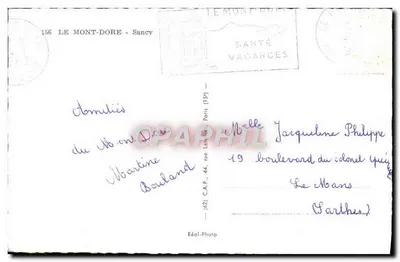 156 LE MONT-DORE - Sancy
LE MONT-DORE
SANTÉ
VACANCES
Amitiés
du Mont Dore
Martine
Bouland
CARPHILE
(62) C.A.P., 44, rue Paris (15e)
Melle Jacqueline Philippe
19 boulevard du colonel
Le Mans
(Sarthe)
Réal-Photo